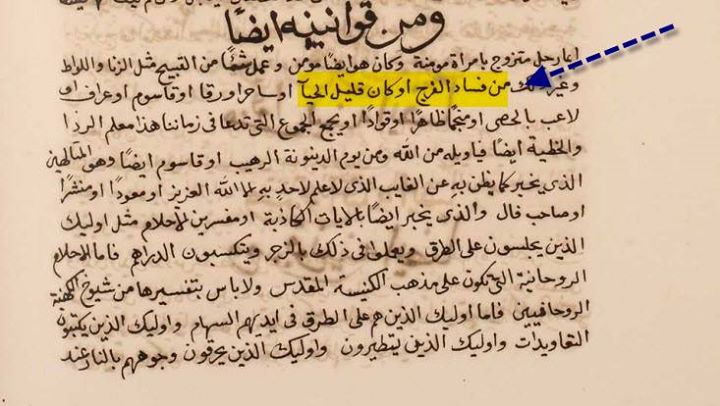 ومن قوانينه ايضًا
ايما رجل متزوج بامراة مومنة وكان هو ايضًا مومن وعمل شيًا من القبيح مثل الزنا واللواط
وغير ذلك من فساد الفرج اوكان قليل الحيآ اوساحرا ورقا اوقاسوم اوعراف او
لاعب بالحصى اومنجمًا ظاهرًا اوقوادًا اويجمع الجموع التى تدعا فى زماننا هذا معلم الردا
والخطية ايضًا فياويله من الله ومن يوم الدينونة الرهيب اوقاسوم ايضًا وهو المتالهين
الذى يخبر كما يظن به عن الغايب الذى لاعلم لاحد به الا الله العزيز اومعودًا اومنشرًا
اوصاحب فال والذى يخبر ايضًا بالايات الكاذبة اومفسرين الاحلام مثل اوليك
الذين يجلسون على الطرق ويعملوا فى ذلك بالزجر ويتكسبون الدراهم فاما الاحلام
الروحانية التى تكون على مذهب الكنيسة المقدس ولاباس بتفسيرها من شيوخ الكهنة
الروحانيين فاما اوليك الذين هم على الطرق فى ايديهم السهام واوليك الذين يكتبون
التعاويدات واوليك الذين يتطيرون واوليك الذين يحرقون وجوههم بالنار عند